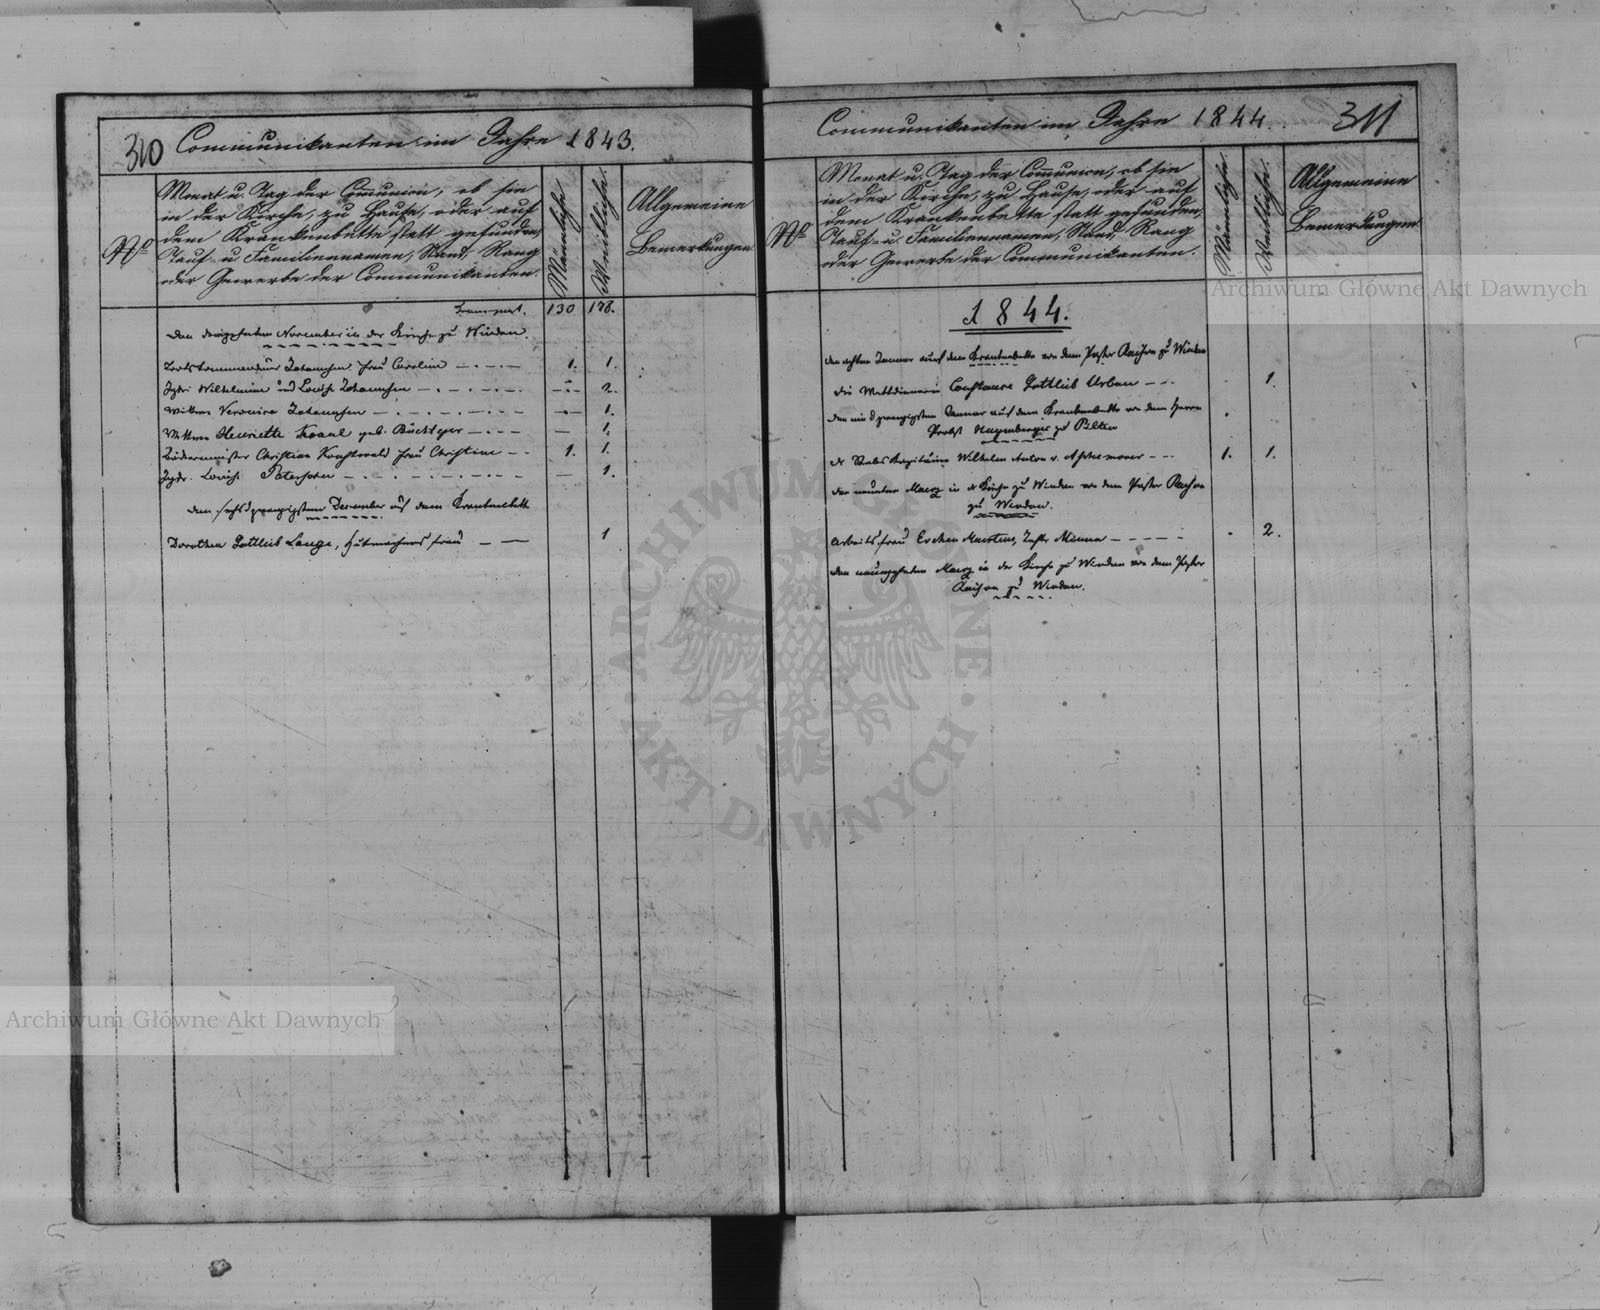 310 Communikanten im Jahre 1843.
No
Monat u. Tag der Comunion, ob sie
in der Kirche, zu Hause, oder auf
dem Krankenbette statt gefunden,
Tauf- u. Familiennamen, Stand, Rang
oder Gewerbe der Communikanten.
Männliche.
Weibliche.
Allgemeine
Bemerkungen
Transport. 130 178.
Den dreizehnten November in der Kirche zu Windau.
Johannsen, Frau Caroline 1. 1.
Wilhelmine und Louise Johannsen 2.
Wittwe Veronica Johannsen 1.
Wittwe Henriette geb. 1.
Christian Frau Christine 1. 1.
Louise 1.
Den sechsundzwanzigsten December auf dem Krankenbette
Dorothea Gottlieb Lange, Hutmachers Frau 1
Communikanten im Jahre 1844. 311
No
Monat u. Tag der Comunion, ob sie
in der Kirche, zu Hause, oder auf
dem Krankenbette statt gefunden,
Tauf- u. Familiennamen, Stand, Rang
oder Gewerbe der Communikanten.
Männliche.
Weibliche.
Allgemeine
Bemerkungen
1844.
Den achten Januar auf dem Krankenbette von dem Pastor zu Windau
die Constance Gottlieb Urban 1.
Januar auf dem Krankenbette von dem Herrn
Probst zu Pilten
der Stabs Kapitaine Wilhelm Anton v. 1. 1.
den neunten Maerz in der Kirche zu Windau von dem Pastor
zu Windau.
Arbeits Frau Minna 2.
den neunzehnten Maerz in der Kirche zu Windau von dem Pastor
zu Windau.
Archiwum Główne Akt Dawnych
Archiwum Główne Akt Dawnych
ARCHIWUM GŁÓWNE · AKT DAWNYCH ·